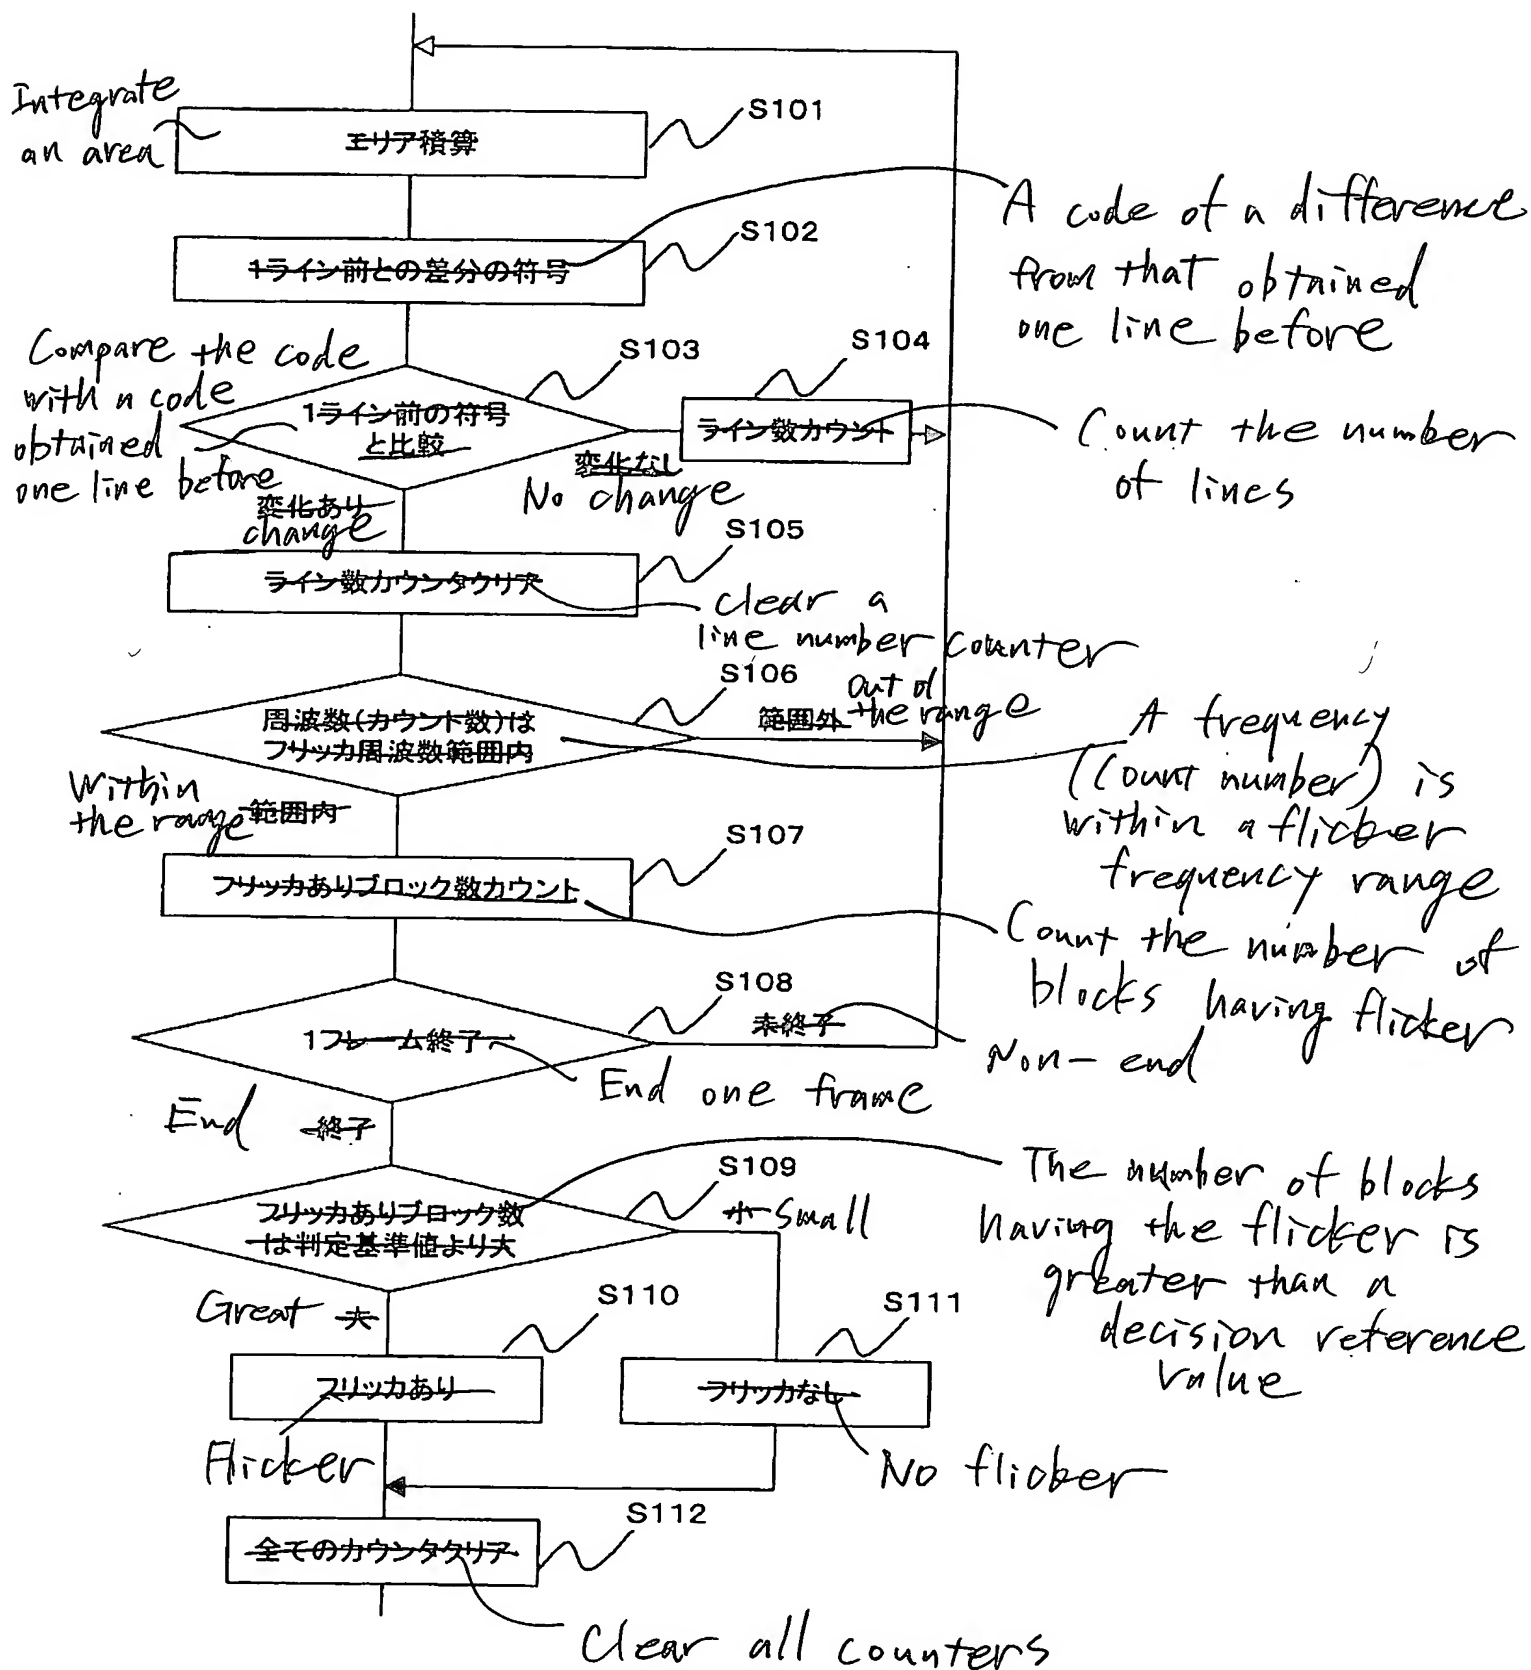 Integrate
an area
エリア積算
S101
1ライン前との差分の符号
S102
A code of a difference
from that obtained
one line before
Compare the code
with a code
obtained
one line before
1ライン前の符号
と比較
S103
変化なし
No change
ライン数カウント
S104
Count the number
of lines
変化あり
change
ライン数カウンタクリア
S105
clear a
line number counter
周波数(カウント数)は
フリッカ周波数範囲内
S106
範囲外
out of
the range
A frequency
(Count number) is
within a flicker
frequency range
Within
the range
範囲内
フリッカありブロック数カウント
S107
Count the number of
blocks having flicker
1フレーム終了
S108
未終了
Non-end
End one frame
End
終了
フリッカありブロック数
は判定基準値より大
S109
小
Small
The number of blocks
having the flicker is
greater than a
decision reference
value
Great
大
フリッカあり
S110
Flicker
フリッカなし
S111
No flicker
全てのカウンタクリア
S112
Clear all counters